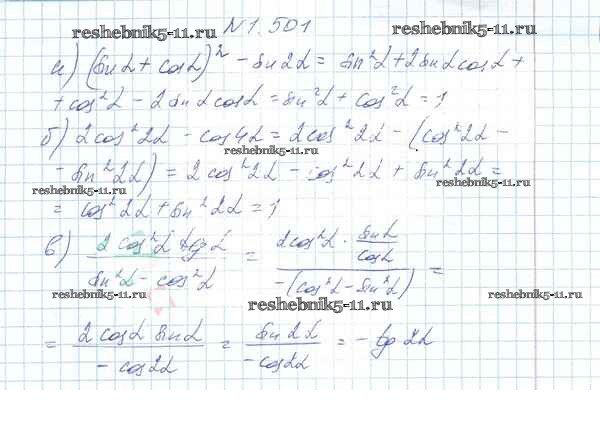 №1.501
reshebnik5-11.ru reshebnik5-11.ru
а) (sinα + cosα)² - sin2α = sin²α + 2sinαcosα +
+ cos²α - 2sinαcosα = sin²α + cos²α = 1
б) 2cos²2α - cos4α = 2cos²2α - (cos²2α -
reshebnik5-11.ru
- sin²2α) = 2cos²2α - cos²2α + sin²2α =
reshebnik5-11.ru reshebnik5-11.ru
= cos²2α + sin²2α = 1
в) (2cos²α tgα)/(sin²α - cos²α) = (2cos²α · sinα/cosα)/(-(cos²α - sin²α)) =
reshebnik5-11.ru reshebnik5-11.ru reshebnik5-11.ru
= (2cosα sinα)/(-cos2α) = (sin2α)/(-cos2α) = -tg2α